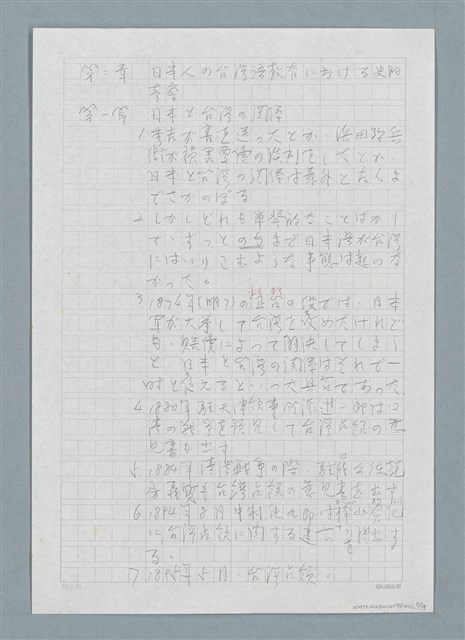 第二章 日本人の台湾語教育における史的
考察
第一節 日本と台湾の関係
1 秀吉が書を送ったとか、浜田弥兵
衛が損害賠償の談判をしたとか、
日本と台湾の関係は意外と古くま
でさかのぼる
2 しかしどれも単発的なことばかり
で、ずっとのちまで日本語が台湾
にはいりこむような事態は起らな
かった。
3 1874年(明7)の征台の役では、日本
軍が大挙して台湾を攻めたけれど
も、賠償によって解決してしまう
と、日本と台湾の関係はそれで一
時と絶えるといった具合であった
4 1880年 駐天津領事
の戦争を予見して台湾占領の意
見書を出す
5 1884年 清仏戦争の際、
台湾占領の意見書を出す
6 1894年8月 中村純九郎は樺山資紀
に台湾占領に関する建言を提出す
る。
7 1895年5月、台湾占領。